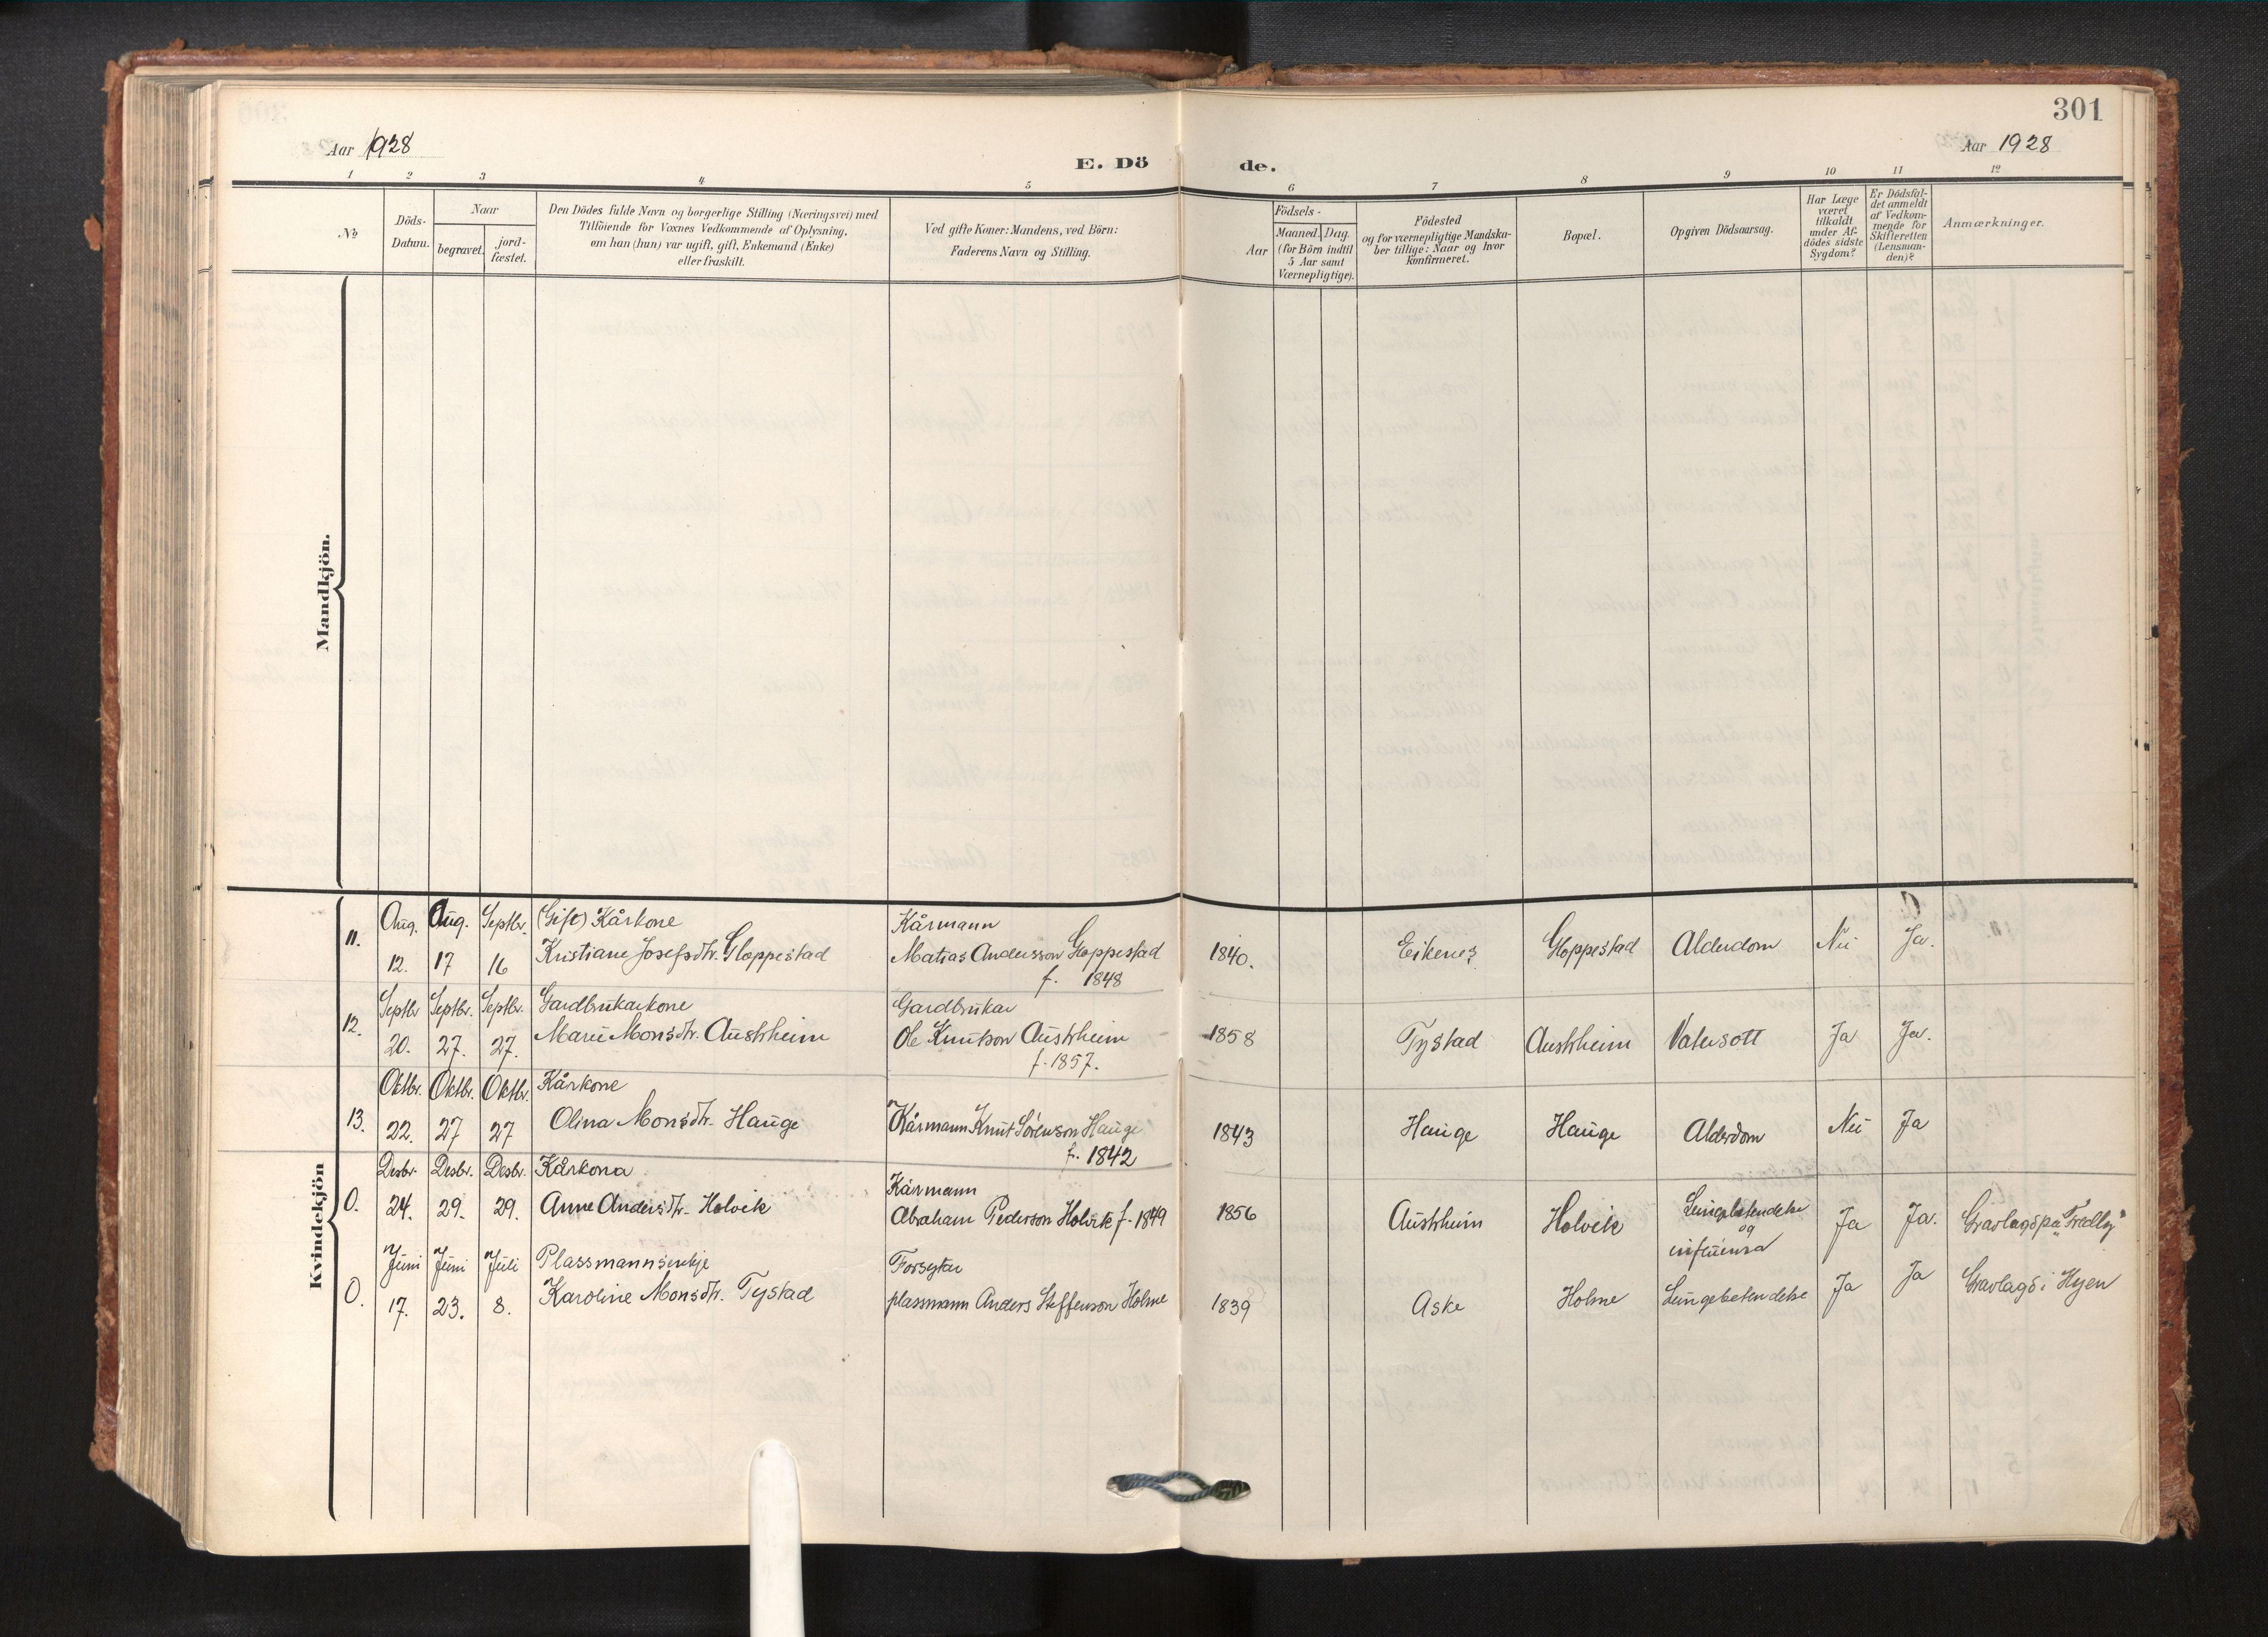 301
Aar 1928
E. Dö de.
Aar 1928
1 2 3 4 5 6 7 8 9 10 11 12
No
Döds-
Datum.
Naar
begravet.
jord-
fæstet.
Den Dödes fulde Navn og borgerlige Stilling (Næringsvei) med
Tilföiende for Voxnes Vedkommende af Oplysning,
om han (hun) var ugift, gift, Enkemand (Enke)
eller fraskilt.
Ved gifte Koner: Mandens, ved Börn:
Faderens Navn og Stilling.
Födsels-
Aar
Maaned. Dag.
(for Börn indtil
5 Aar samt
Værnepligtige).
Födested
og for værnepligtige Mandska-
ber tillige: Naar og hvor
Konfirmeret.
Bopæl.
Opgiven Dödsaarsag.
Har Læge
været
tilkaldt
under Af-
dödes sidste
Sygdom?
Er Dödsfal-
det anmeldt
af Vedkom-
mende for
Skifteretten
(Lensman-
den)?
Anmærkninger.
Mandkjön.
Kvindekjön
11.
Aug. 12.
Aug. 17
Septbr. 16
(Gift) Kårkone
Kristiane Josefsdtr. Gloppestad
Kårmann
Matias Andersson Gloppestad
f. 1848
1840.
Eikenes
Gloppestad
Alderdom
Nei
Ja.
12.
Septbr 20.
Septbr. 27.
Septbr. 27.
Gardbrukarkone
Marie Monsdtr. Austrheim
Gardbrukar
Ole Knutson Austrheim
f. 1857.
1858
Tystad
Austrheim
Vatersott
Ja
Ja.
13.
Oktbr. 22.
Oktbr. 27
Oktbr. 27
Kårkone
Olina Monsdtr. Hauge
Kårmann Knut Sörenson Hauge
f. 1842
1843
Hauge
Hauge
Alderdom
Nei
Ja
0.
Desbr. 24.
Desbr. 29.
Desbr. 29.
Kårkona
Anne Andersdtr. Holvik
Kårmann
Abraham Pederson Holvik f. 1849
1856
Austrheim
Holvik
og
influensa
Ja
Ja.
Gravlagd på "Fredly"
0.
Juni 17.
Juni 23.
Juli 8.
Plassmannsenkje
Karoline Monsdtr. Tystad
Forsytar
plassmann Anders Steffenson Holme
1839
Aske
Holme
Lungebetendelse
Ja
Ja
Gravlagd i Hyen